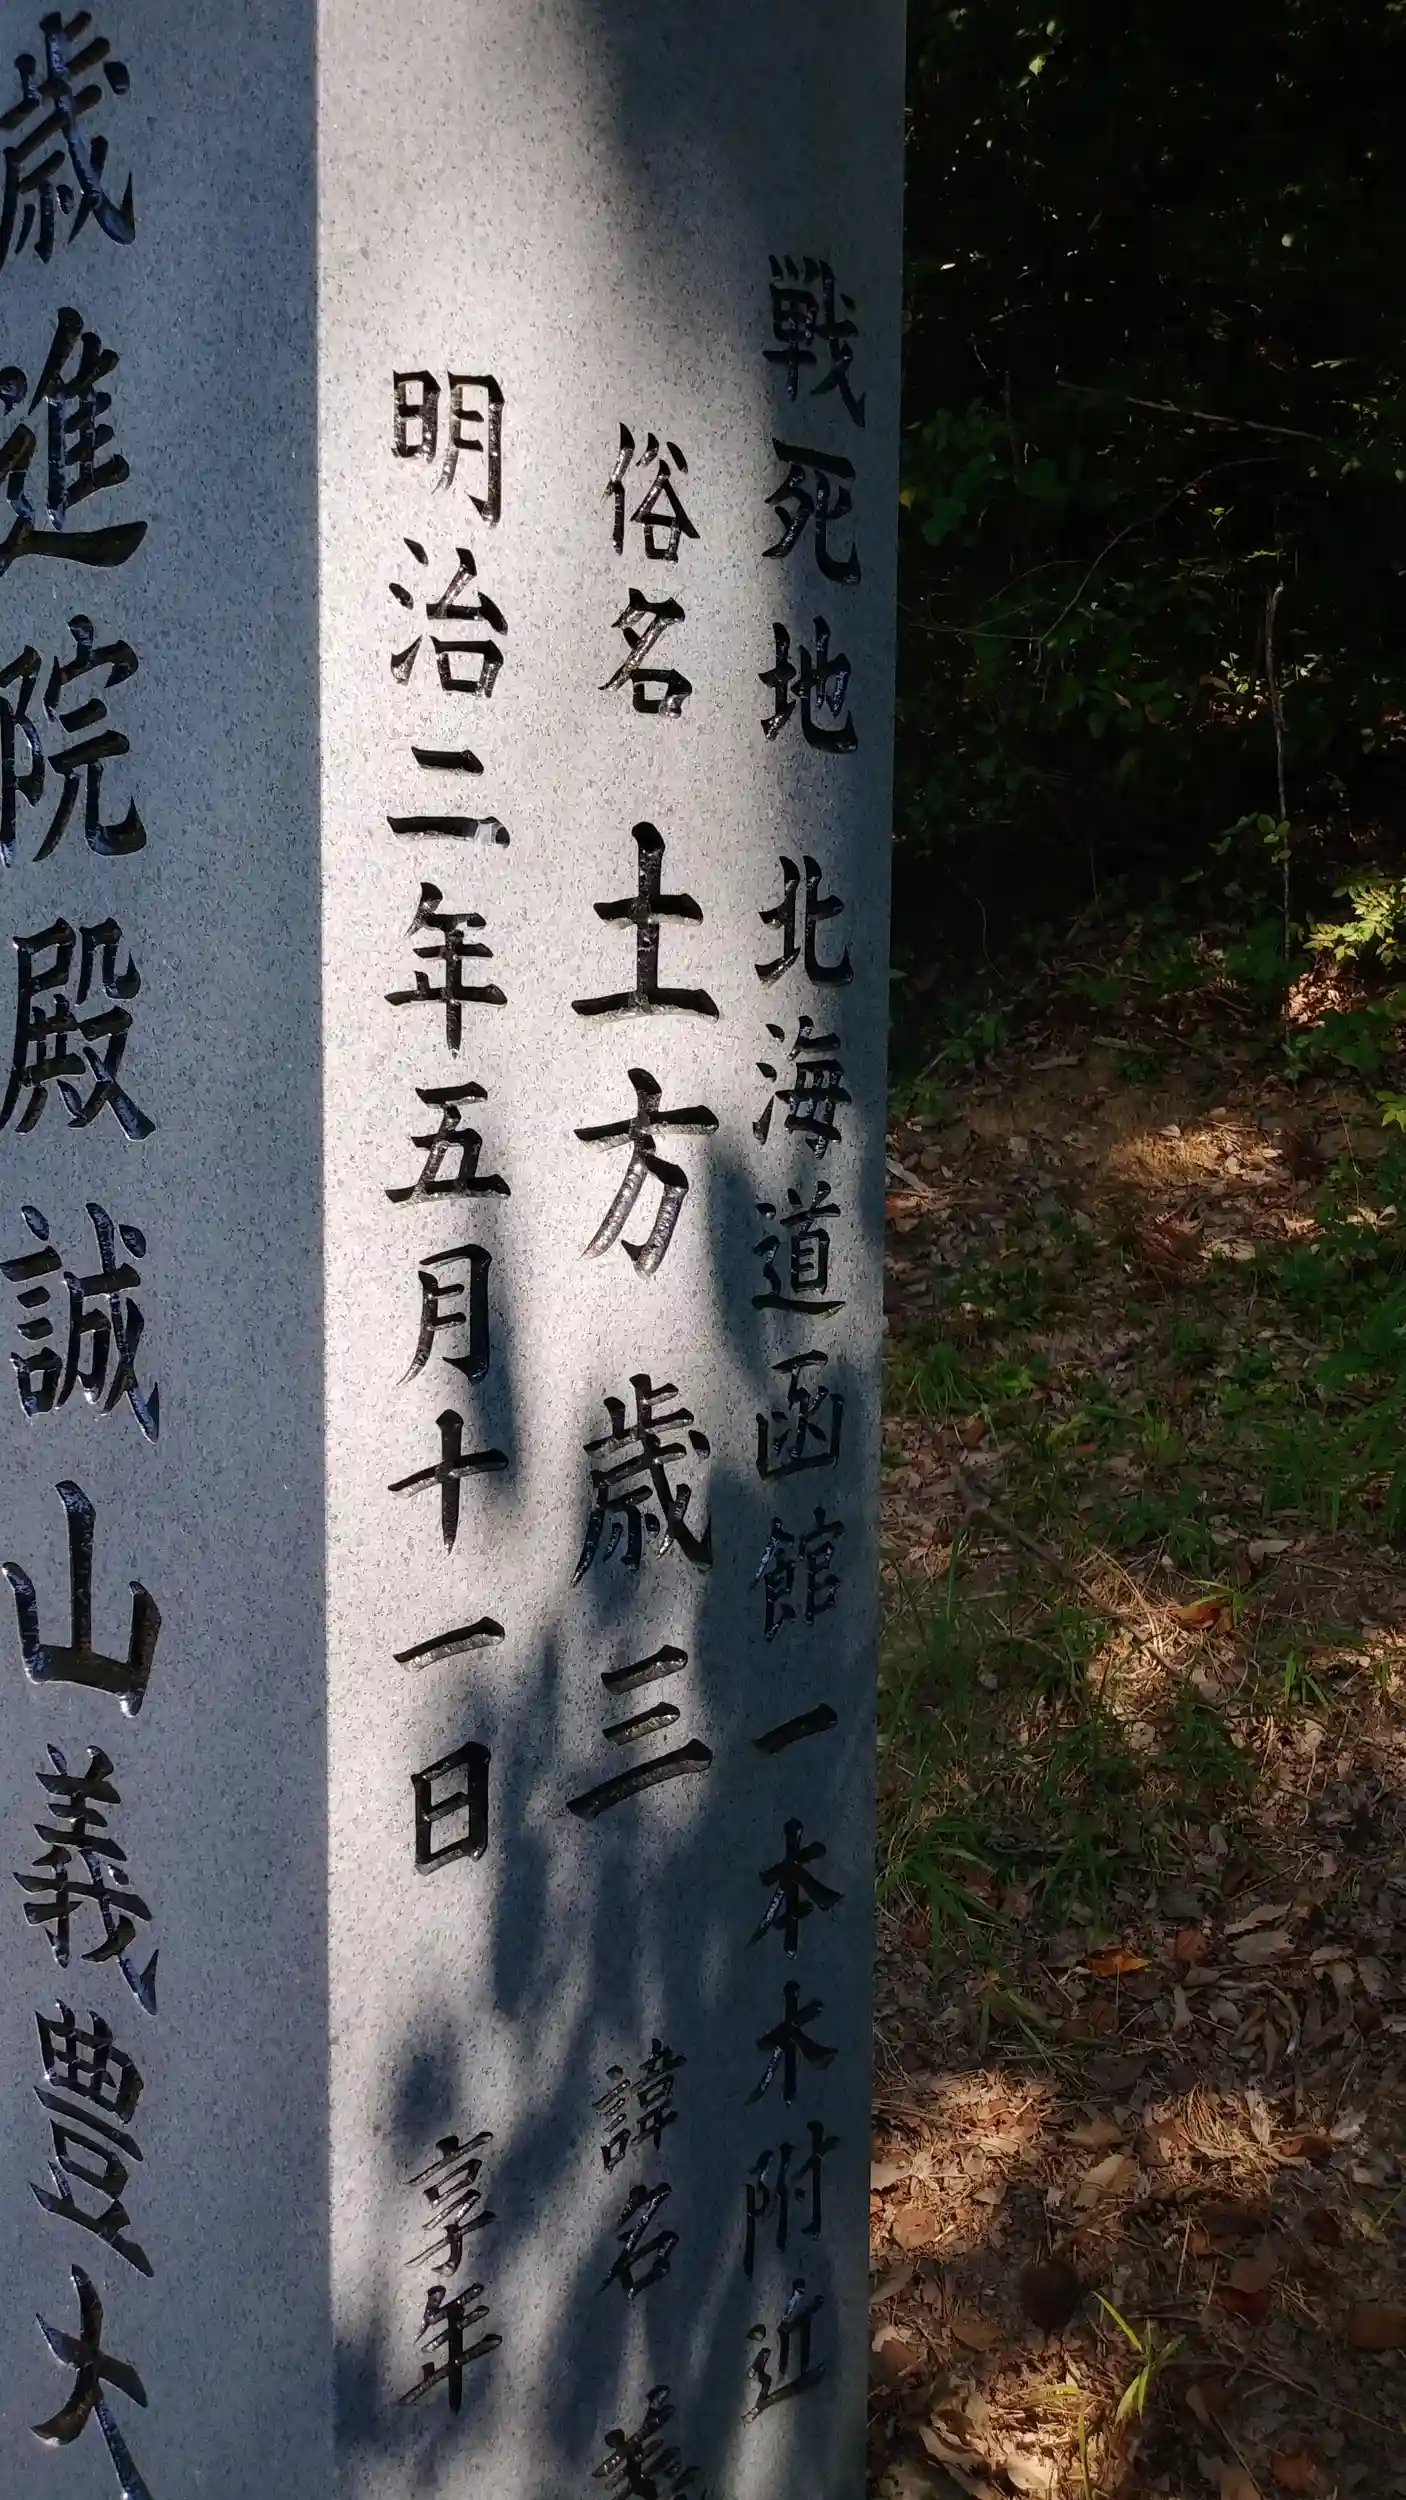 戦死地 北海道函館一本木附近
俗名 土方歳三 諱名 義
明治二年五月十一日 享年
歳進院殿誠山義豊大